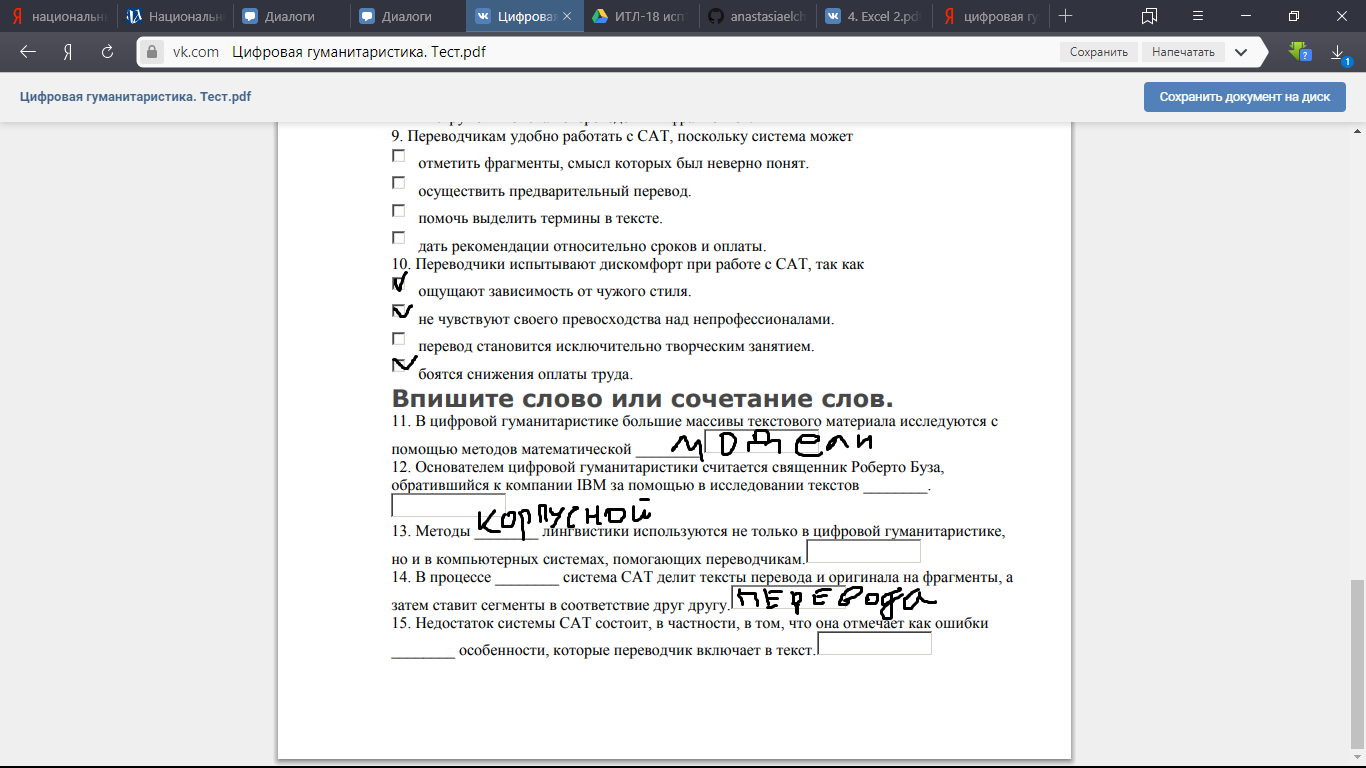 национальн
Национальн
Диалоги
Диалоги
Цифрова
ИТЛ-18 исп
anastasiaelch
4. Excel 2.pd
цифровая гу
vk.com Цифровая гуманитаристика. Тест.pdf
Сохранить
Напечатать
Цифровая гуманитаристика. Тест.pdf
Сохранить документ на диск
9. Переводчикам удобно работать с CAT, поскольку система может
отметить фрагменты, смысл которых был неверно понят.
осуществить предварительный перевод.
помочь выделить термины в тексте.
дать рекомендации относительно сроков и оплаты.
10. Переводчики испытывают дискомфорт при работе с CAT, так как
ощущают зависимость от чужого стиля.
не чувствуют своего превосходства над непрофессионалами.
перевод становится исключительно творческим занятием.
боятся снижения оплаты труда.
Впишите слово или сочетание слов.
11. В цифровой гуманитаристике большие массивы текстового материала исследуются с
помощью методов математической ________ модели
12. Основателем цифровой гуманитаристики считается священник Роберто Буза,
обратившийся к компании IBM за помощью в исследовании текстов ________.
корпусной
13. Методы ________ лингвистики используются не только в цифровой гуманитаристике,
но и в компьютерных системах, помогающих переводчикам.
14. В процессе ________ система CAT делит тексты перевода и оригинала на фрагменты, а
затем ставит сегменты в соответствие друг другу. перевода
15. Недостаток системы CAT состоит, в частности, в том, что она отмечает как ошибки
________ особенности, которые переводчик включает в текст.